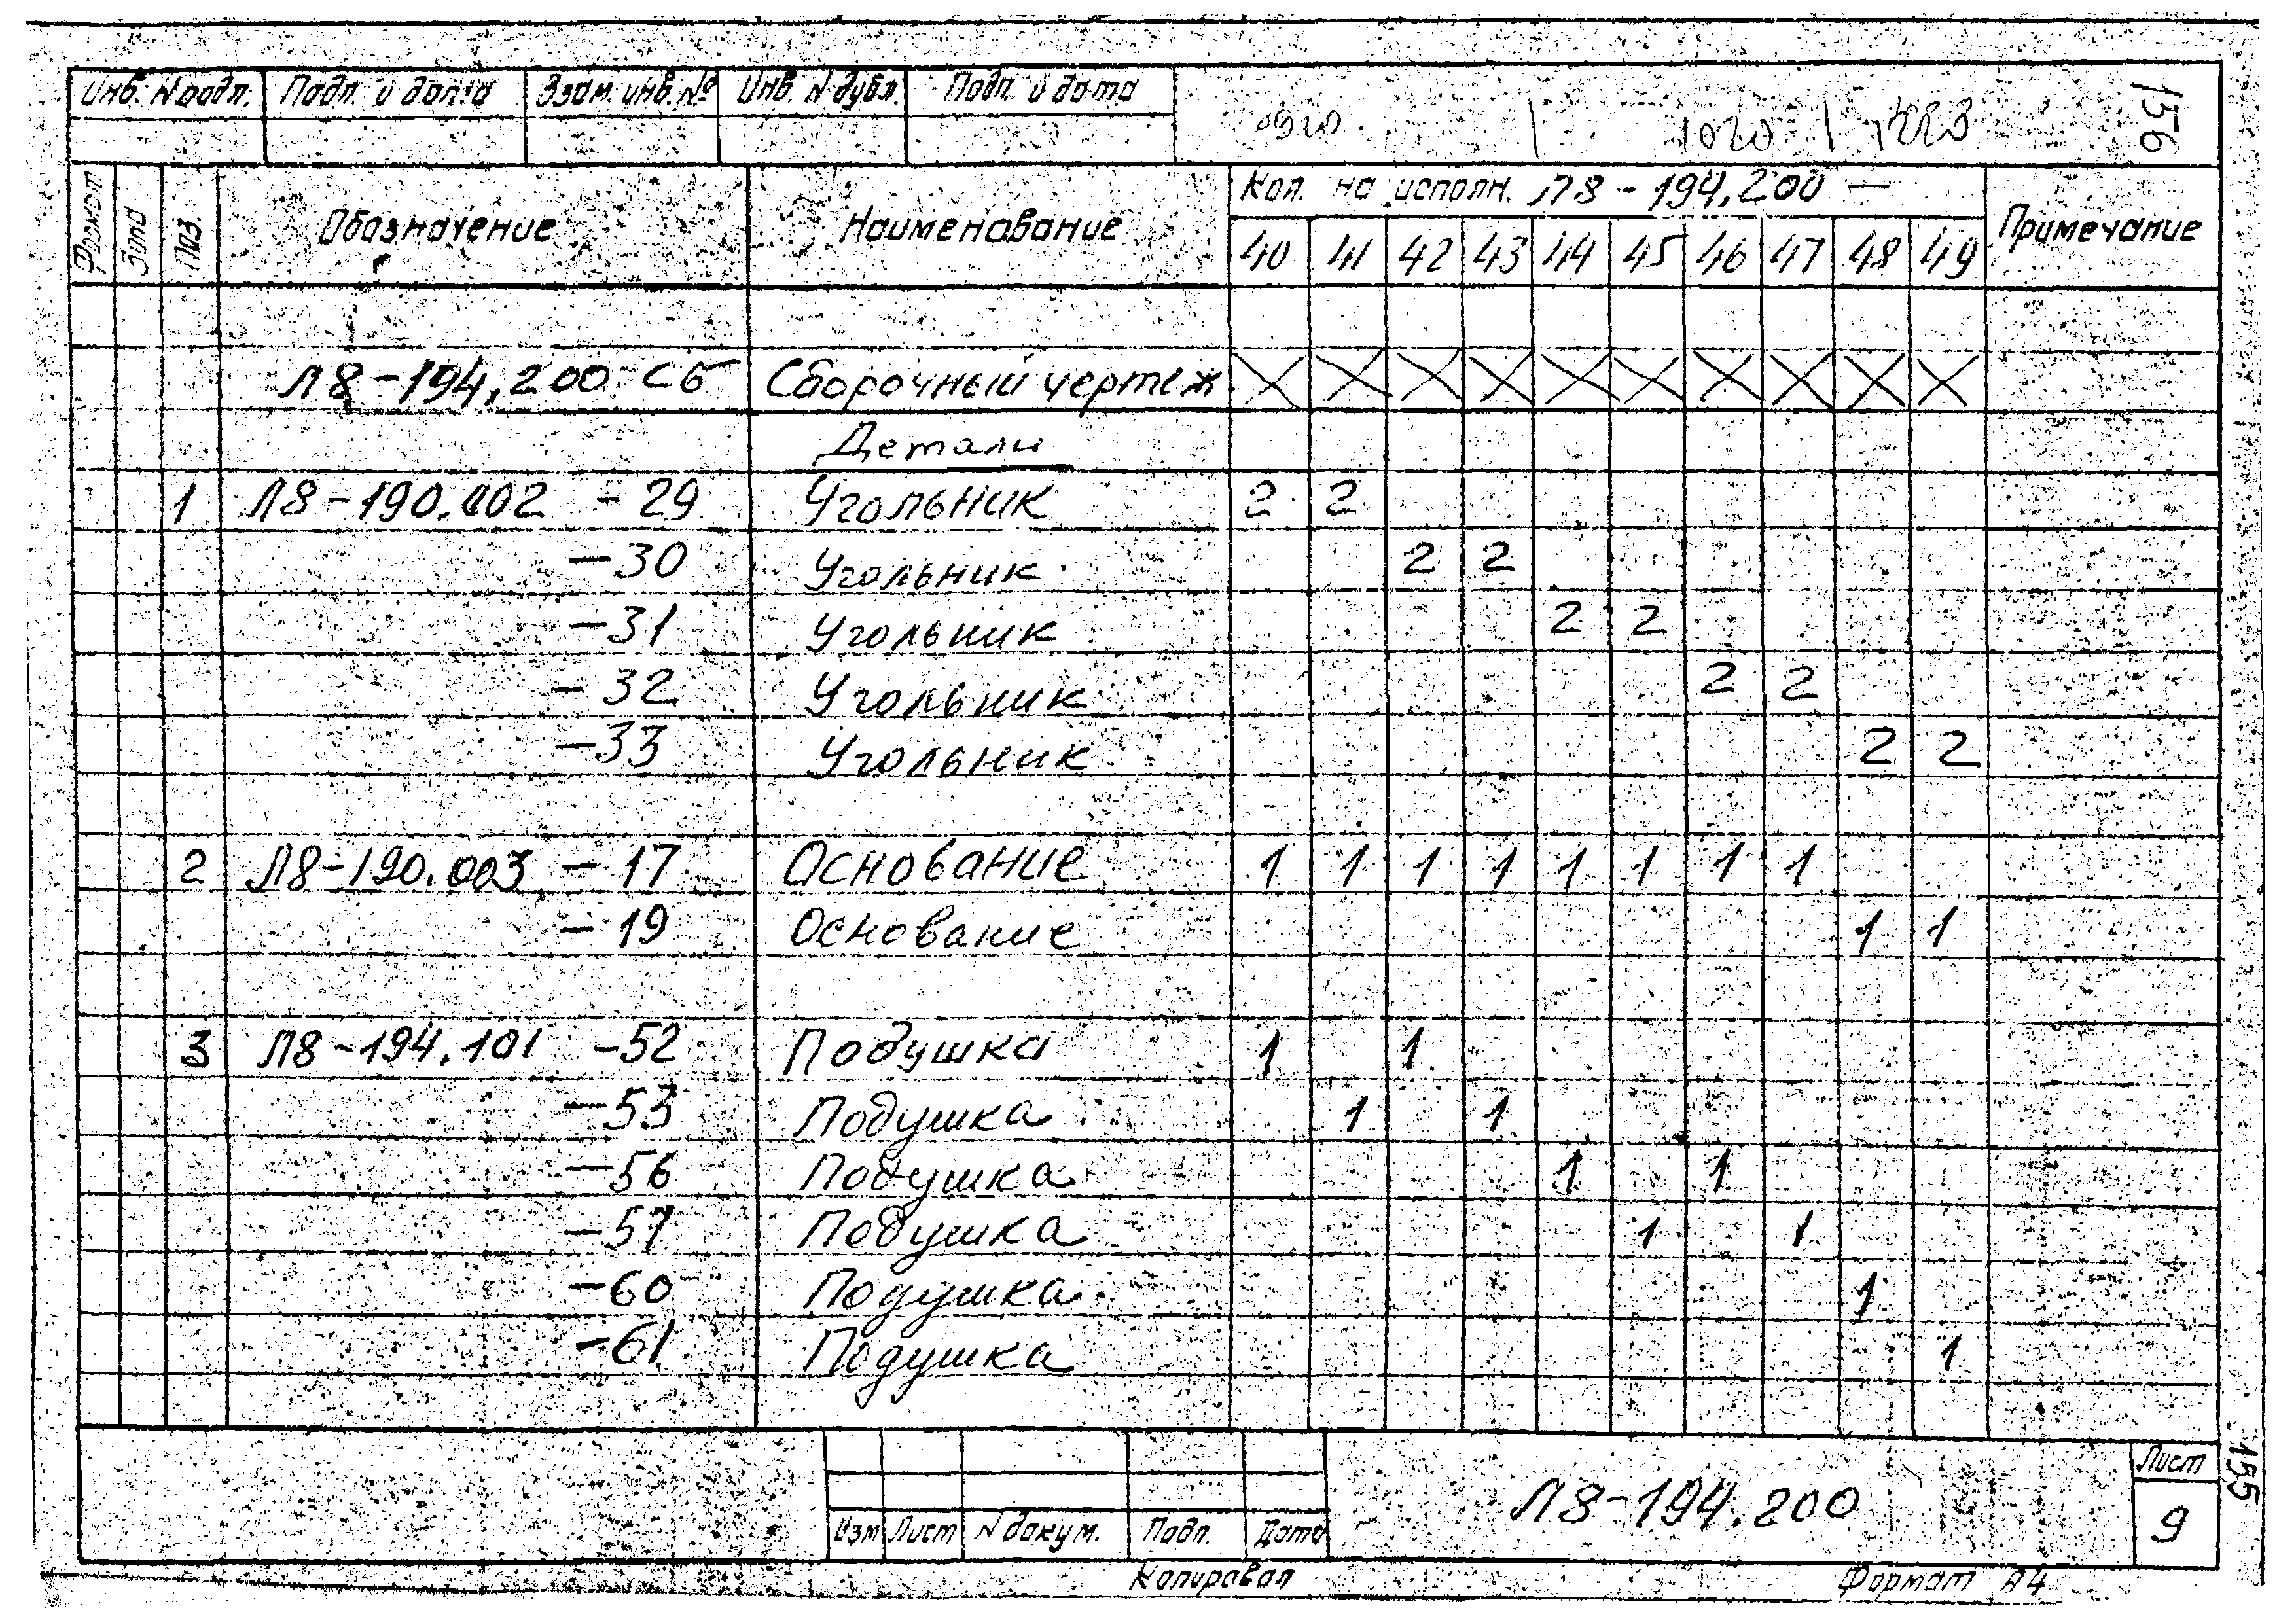 Инв. N подл. Подп. и дата Взам. инв. № Инв. N дубл. Подп. и дата
1020 1223 156
Формат Зона Поз. Обозначение Наименование Кол. на исполн. Л8-194.200 — Примечание
40 41 42 43 44 45 46 47 48 49
Л8-194.200 СБ Сборочный чертеж X X X X X X X X X X
Детали
1 Л8-190.002 -29 Угольник 2 2
-30 Угольник 2 2
-31 Угольник 2 2
-32 Угольник 2 2
-33 Угольник 2 2
2 Л8-190.003 -17 Основание 1 1 1 1 1 1 1 1
-19 Основание 1 1
3 Л8-194.101 -52 Подушка 1 1
-53 Подушка 1 1
-56 Подушка 1 1
-57 Подушка 1 1
-60 Подушка 1
-61 Подушка 1
Изм Лист N докум. Подп. Дата
Л8-194.200
Лист
9
155
Копировал Формат А4